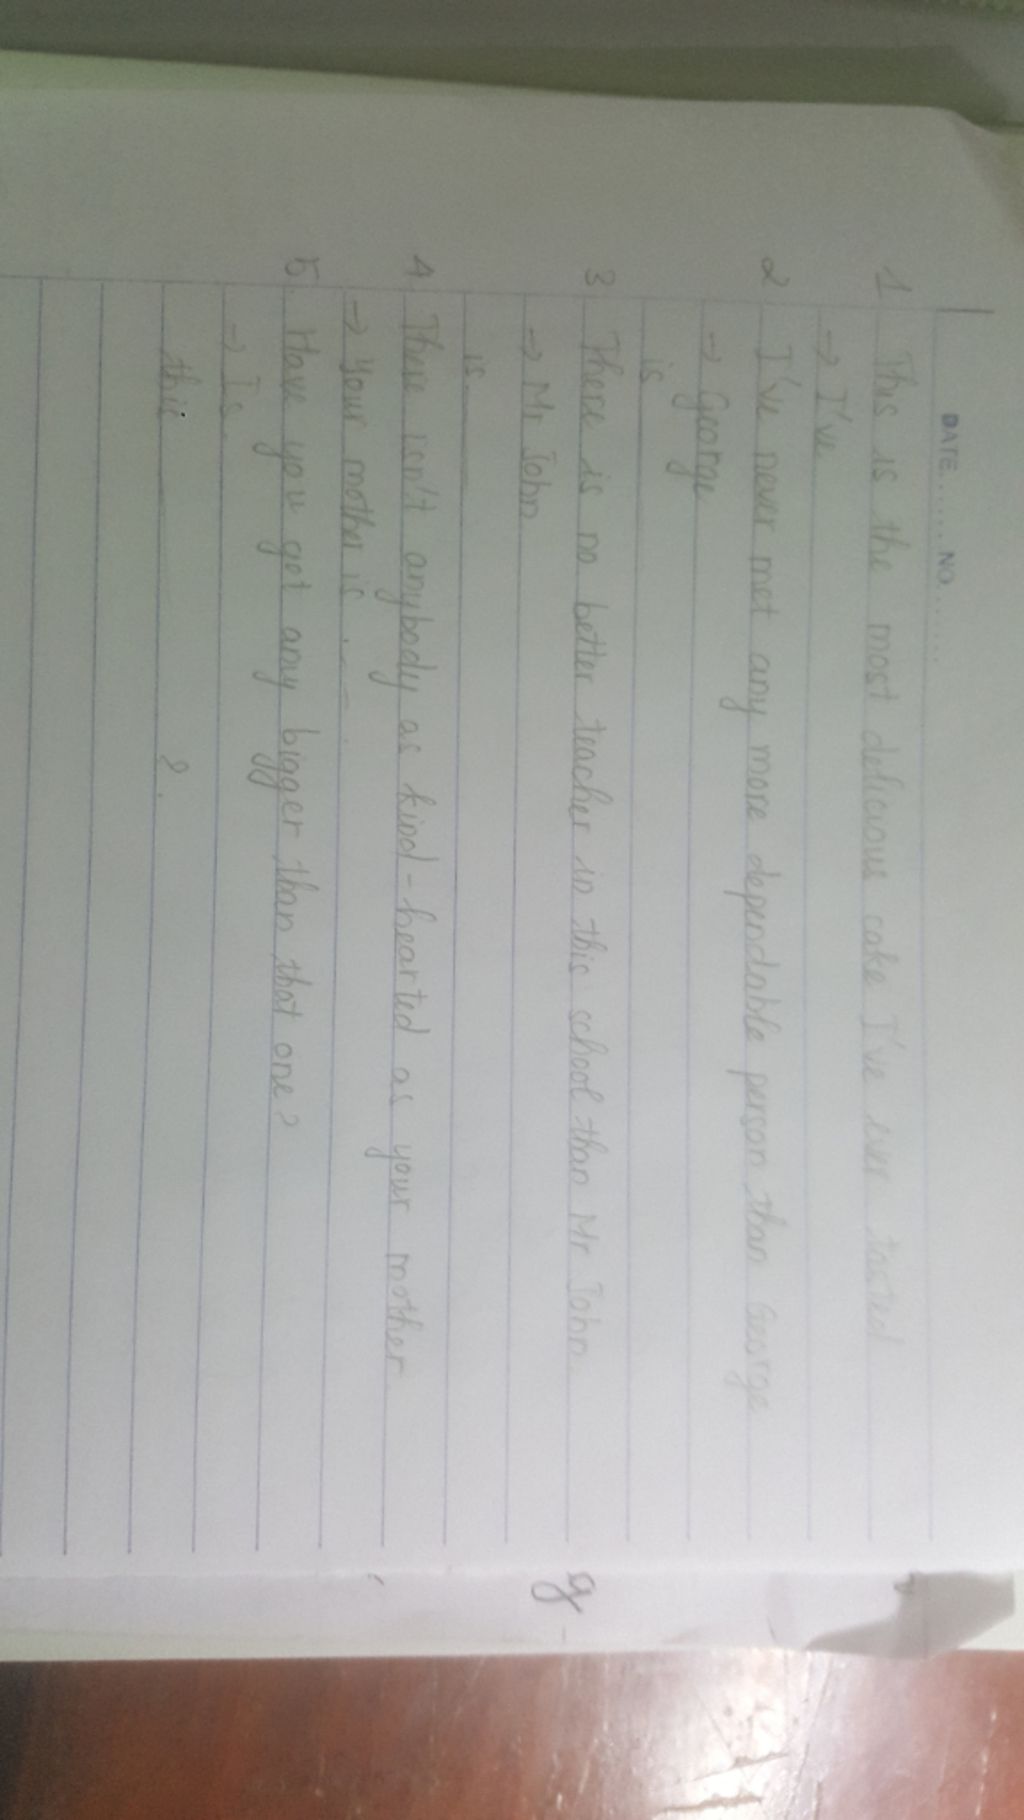 DATE........ NO........
1 This is the most delicious cake I've ever tasted
→ I've
2 I've never met any more dependable person than George
→ George
is
3 There is no better teacher in this school than Mr John.
→ Mr John
is
4. There isn't anybody as kind-hearted as your mother
→ your mother is . - - .
5. Have you got any bigger than that one?
→ Is
this ?.
g